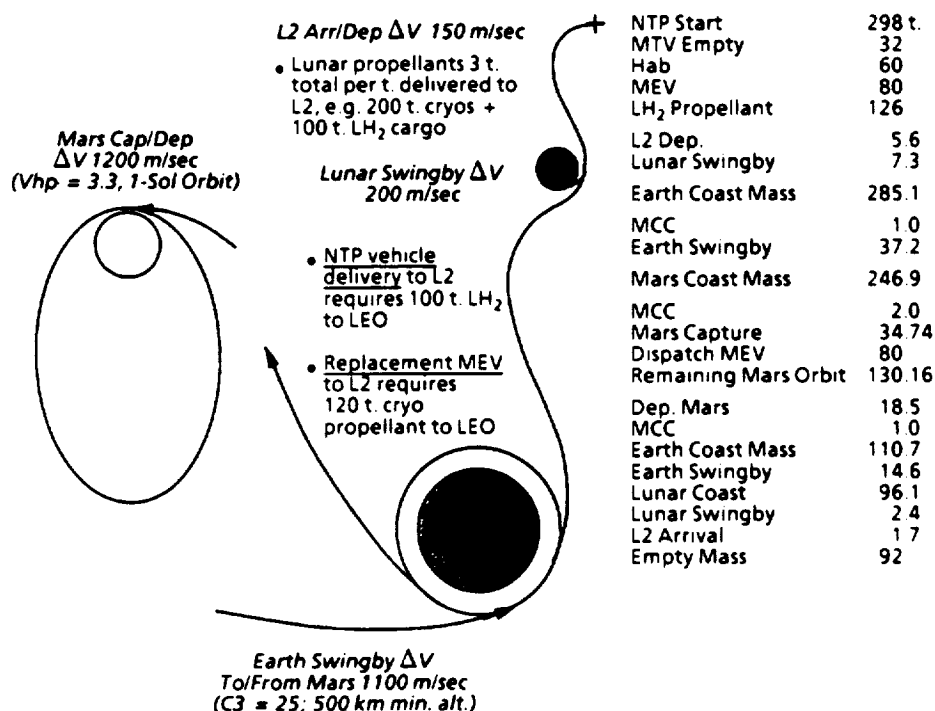 L2 Arr/Dep ΔV 150 m/sec
• Lunar propellants 3 t.
total per t. delivered to
L2, e.g. 200 t. cryos +
100 t. LH₂ cargo
Mars Cap/Dep
ΔV 1200 m/sec
(Vhp = 3.3, 1-Sol Orbit)
Lunar Swingby ΔV
200 m/sec
• NTP vehicle
delivery to L2
requires 100 t. LH₂
to LEO
• Replacement MEV
to L2 requires
120 t. cryo
propellant to LEO
Earth Swingby ΔV
To/From Mars 1100 m/sec
(C3 = 25; 500 km min. alt.)
NTP Start 298 t.
MTV Empty 32
Hab 60
MEV 80
LH₂ Propellant 126
L2 Dep. 5.6
Lunar Swingby 7.3
Earth Coast Mass 285.1
MCC 1.0
Earth Swingby 37.2
Mars Coast Mass 246.9
MCC 2.0
Mars Capture 34.74
Dispatch MEV 80
Remaining Mars Orbit 130.16
Dep. Mars 18.5
MCC 1.0
Earth Coast Mass 110.7
Earth Swingby 14.6
Lunar Coast 96.1
Lunar Swingby 2.4
L2 Arrival 1.7
Empty Mass 92